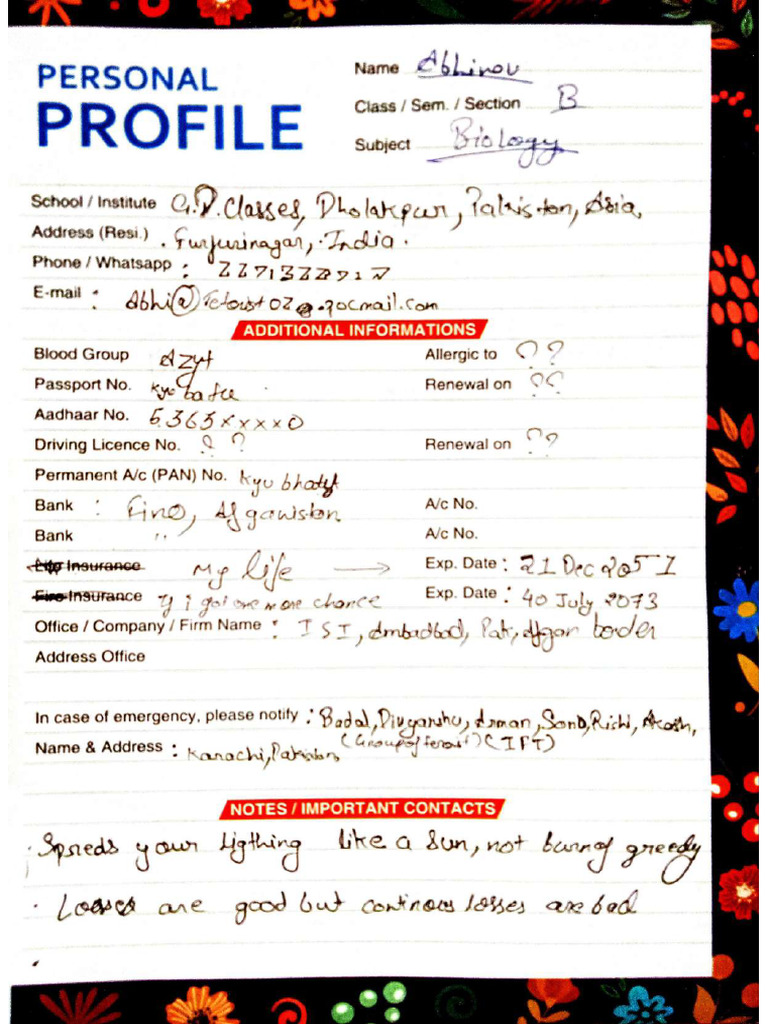 PERSONAL
PROFILE
Name Abhinov
Class / Sem. / Section B
Subject Biology
School / Institute G.D. Classes, Dholakpur, Pakiston, Asia,
Address (Resi.) . Furfurinagar, India.
Phone / Whatsapp :
E-mail : Abhi@
ADDITIONAL INFORMATIONS
Blood Group AZyt
Allergic to ??
Passport No. Kyu batu
Renewal on ??
Aadhaar No. 5365xxxx0
Driving Licence No. ? ?
Renewal on ??
Permanent A/c (PAN) No. Kyu
Bank : Fino, Afgawiston
A/c No.
Bank ,,
A/c No.
Life Insurance My life →
Exp. Date : 21 Dec 2051
Fire Insurance If i got one more chance
Exp. Date : 40 July, 2073
Office / Company / Firm Name : ISI, Ambadbad, Pak, Afgan border
Address Office
In case of emergency, please notify : Badal, Divyanshu, Arman, Rishi, Akash,
Name & Address : Karachi, Pakistan (IFT)
NOTES / IMPORTANT CONTACTS
Spreds your ligthing like a sun, not greedy
. Looses are good but continous losses are bad